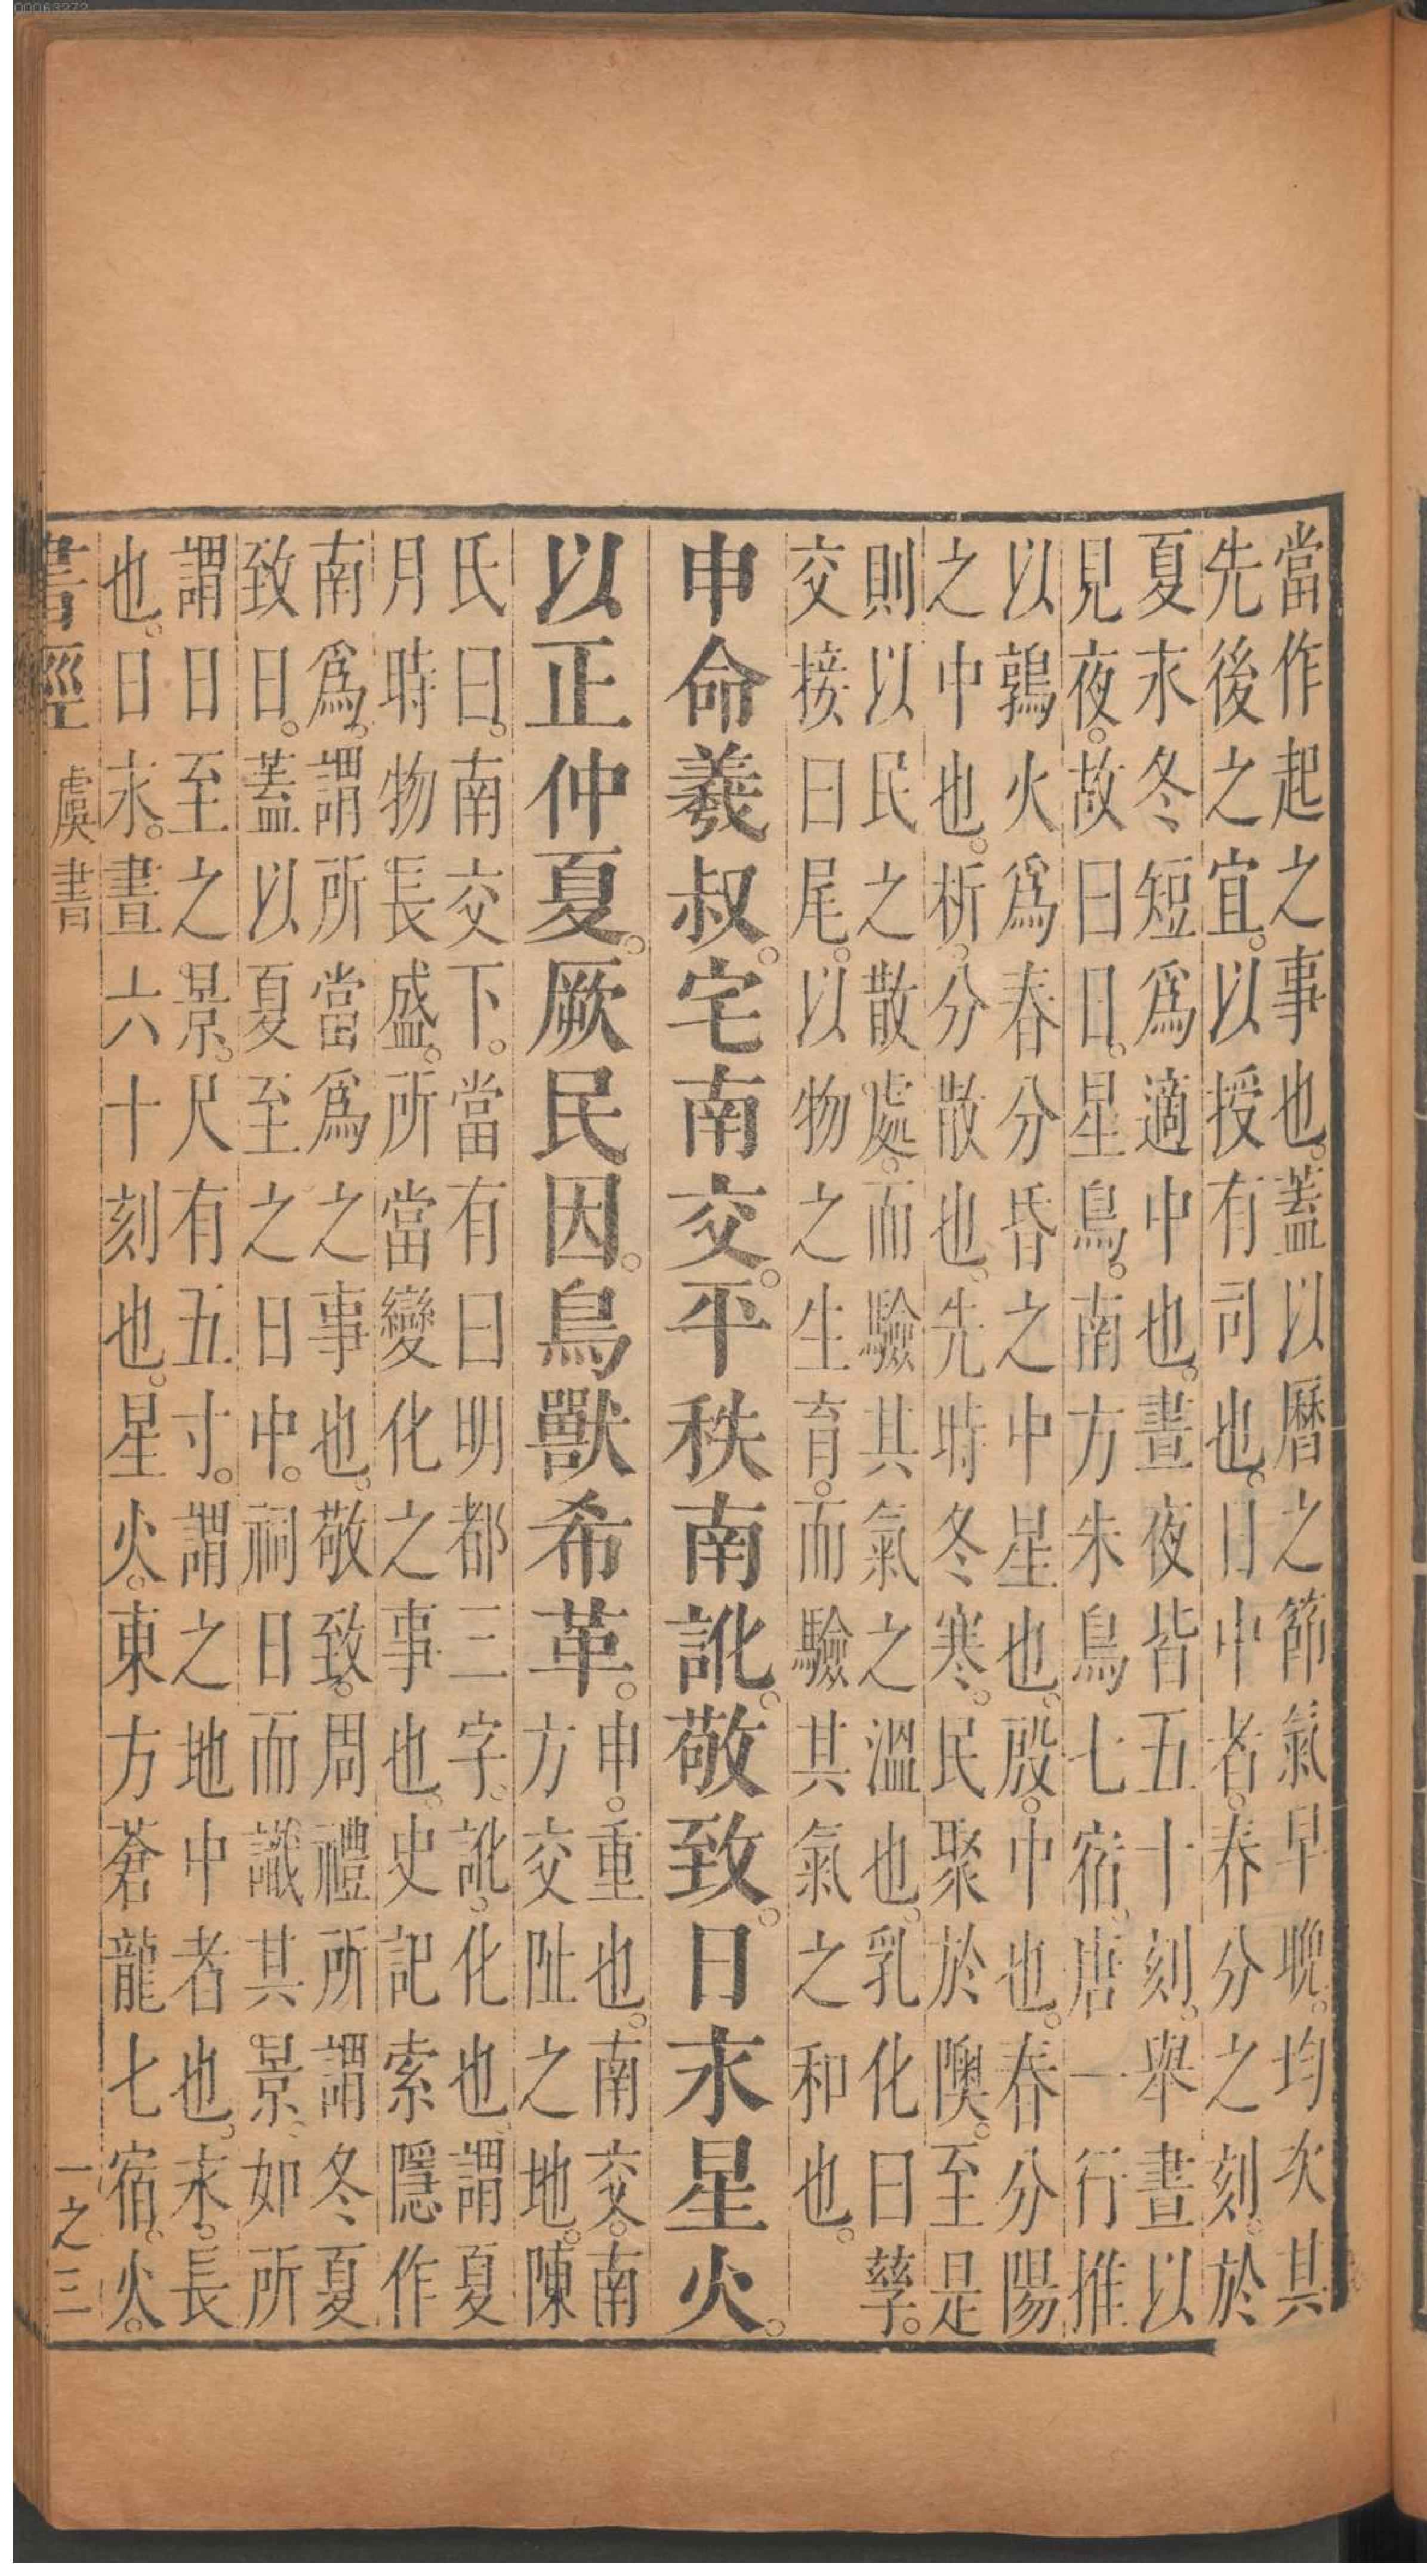 00063272
當作起之事也。蓋以曆之節氣早晚。均次其
先後之宜。以授有司也。日中者。春分之刻。於
夏永冬短爲適中也。晝夜皆五十刻。舉晝以
見夜。故曰日。星鳥。南方朱鳥七宿。唐一行推
以鶉火爲春分昏之中星也。殷。中也。春分陽
之中也。析。分散也。先時冬寒。民聚於隩。至是
則以民之散處。而驗其氣之溫也。乳化曰孳。
交接曰尾。以物之生育。而驗其氣之和也。
申命羲叔。宅南交。平秩南訛。敬致。日永星火。
以正仲夏。厥民因。鳥獸希革。
申。重也。南交。南
方交阯之地。陳
氏曰。南交下。當有曰明都三字。訛。化也。謂夏
月時物長盛。所當變化之事也。史記索隱作
南爲。謂所當爲之事也。敬致。周禮所謂冬夏
致日。蓋以夏至之日中。祠日而識其景。如所
謂日至之景。尺有五寸。謂之地中者也。永。長
也。日永。晝六十刻也。星火。東方蒼龍七宿。火。
書經 虞書 一之三